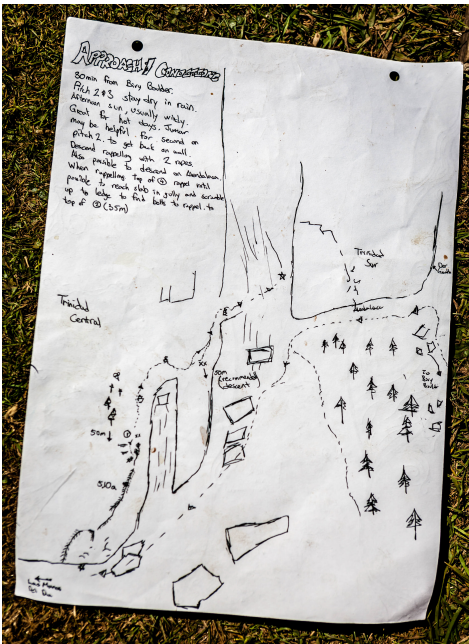 APPROACH / CONDITIONS
30min from Bivy Boulder.
Pitch 2 & 3 stay dry in rain.
Afternoon sun, usually windy.
Great for hot days. Jumar
may be helpful for second on
pitch 2. to get back on wall.
Descend rappelling with 2 ropes
Also possible to descend on
When rappelling top of ④ rappel until
possible to reach slab in gully and scramble
up to ledge to find bolts to rappel to
top of ③ (55m)
Trinidad
Sur
Trinidad
Central
50m
(recommended)
descent
To
Bivy
Boulder
55m
①
5.10a